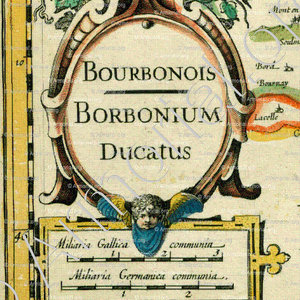 BOURBONOIS
BORBONIUM
DUCATUS
Miliaria Gallica communia
1 2 3
Miliaria Germanica communia
1 2
10
Bord
Bournay
Lacelle